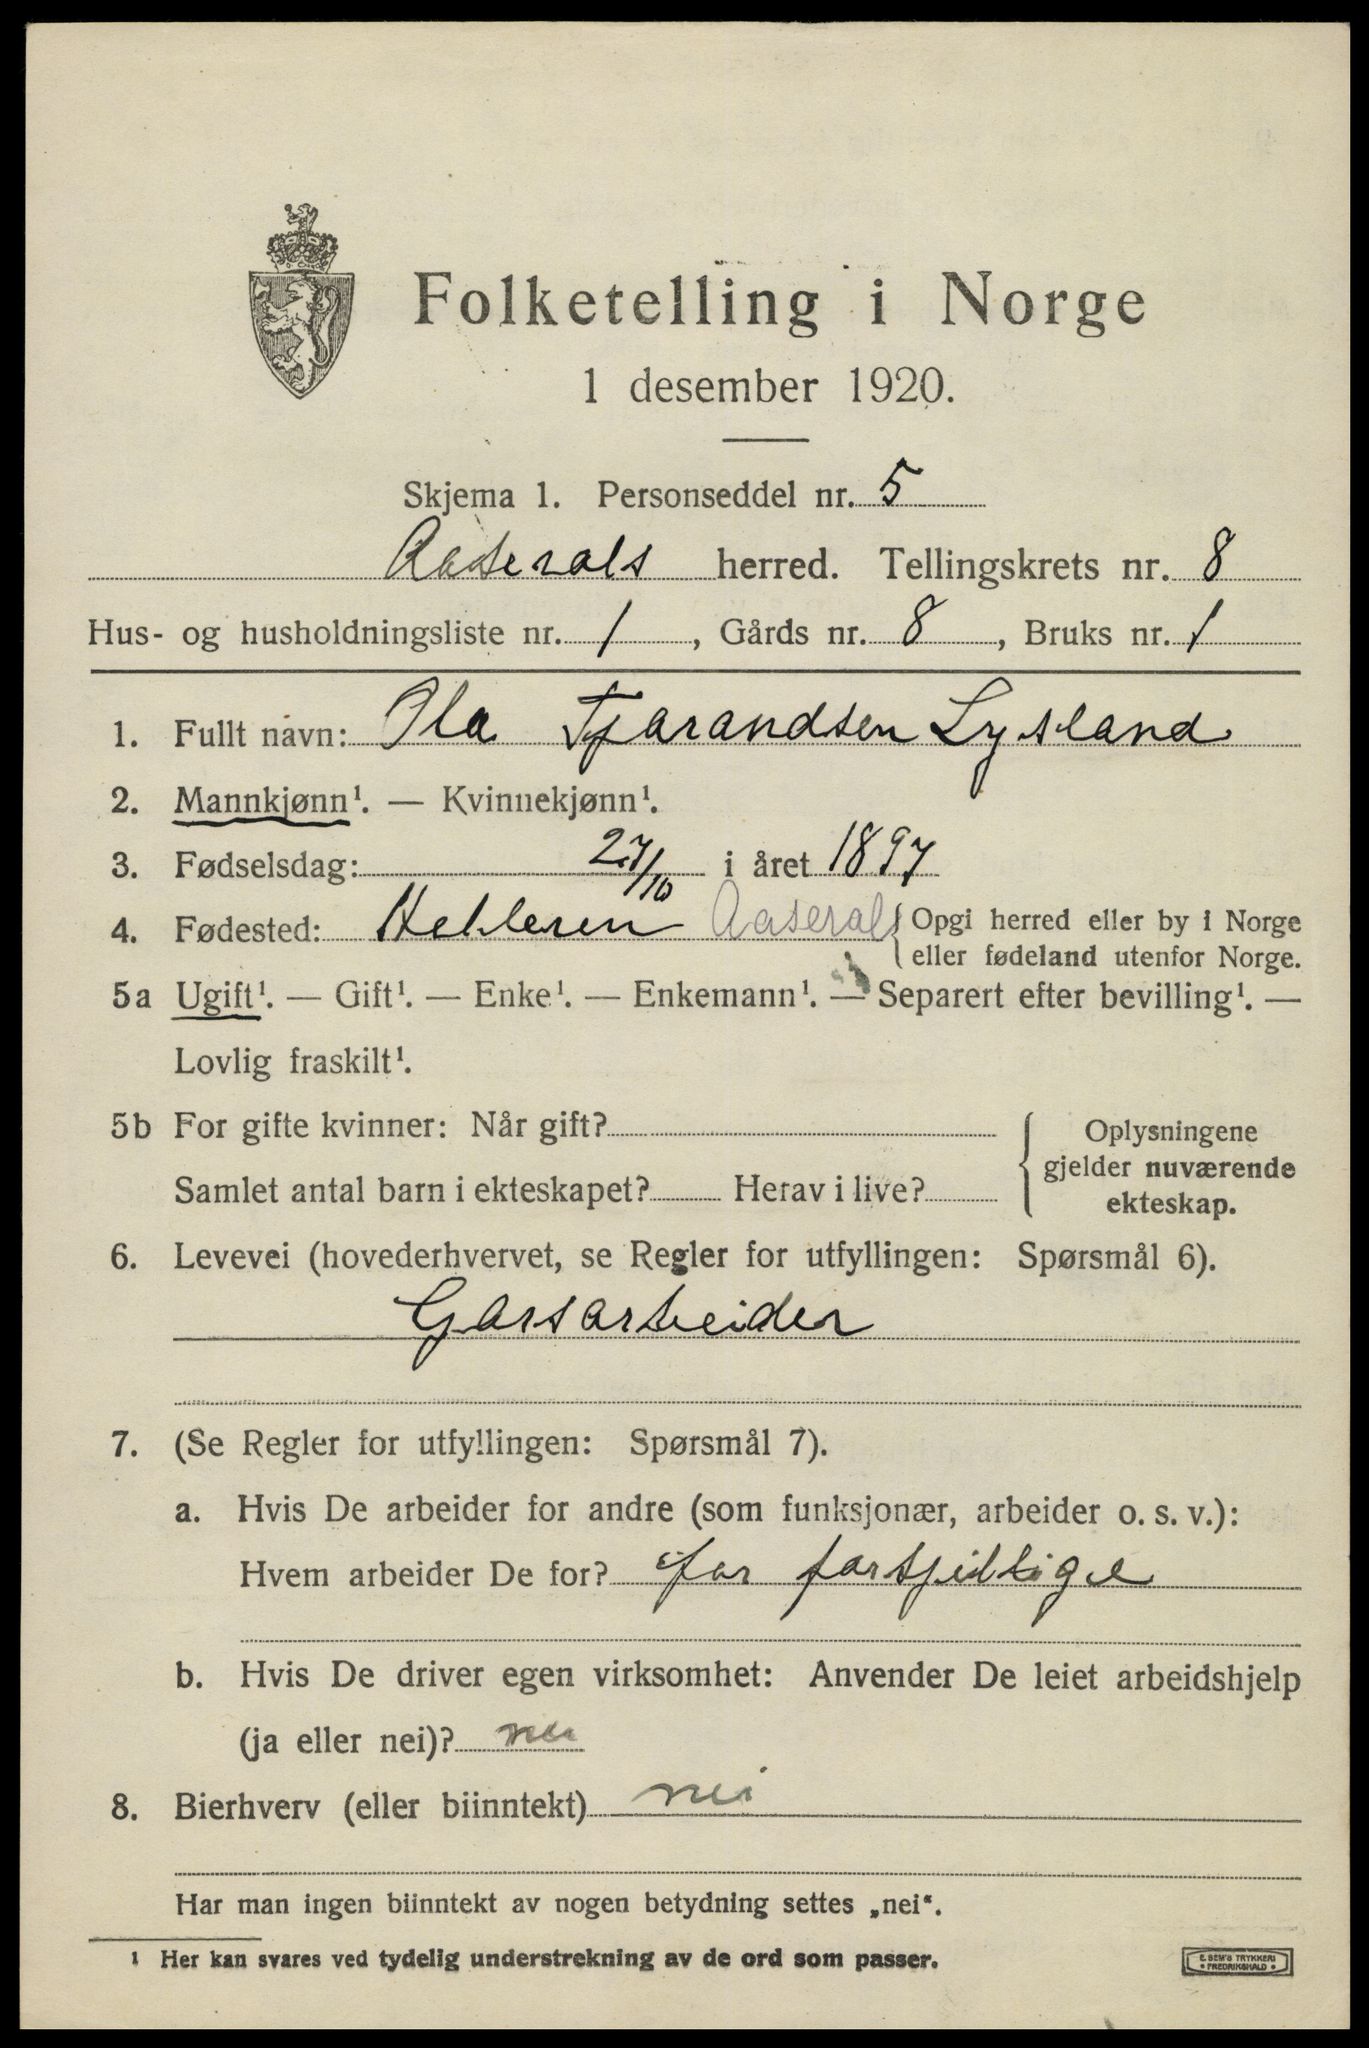 Folketelling i Norge
1 desember 1920.
Skjema 1. Personseddel nr. 5
Aaserals herred. Tellingskrets nr. 8
Hus- og husholdningsliste nr. 1, Gårds nr. 8, Bruks nr. 1
1. Fullt navn: Ola Tjarandsen Lysland
2. Mannkjønn¹. — Kvinnekjønn¹.
3. Fødselsdag: 27/10 i året 1897
4. Fødested: Helleren Aaseral { Opgi herred eller by i Norge
eller fødeland utenfor Norge.
5a Ugift¹. — Gift¹. — Enke¹. — Enkemann¹. — Separert efter bevilling¹. —
Lovlig fraskilt¹.
5b For gifte kvinner: Når gift?
Samlet antal barn i ekteskapet? Herav i live?
Oplysningene
gjelder nuværende
ekteskap.
6. Levevei (hovederhvervet, se Regler for utfyllingen: Spørsmål 6).
Garsarbeider
7. (Se Regler for utfyllingen: Spørsmål 7).
a. Hvis De arbeider for andre (som funksjonær, arbeider o. s. v.):
Hvem arbeider De for? for forskjellige
b. Hvis De driver egen virksomhet: Anvender De leiet arbeidshjelp
(ja eller nei)? nei
8. Bierhverv (eller biinntekt) nei
Har man ingen biinntekt av nogen betydning settes „nei“.
¹ Her kan svares ved tydelig understrekning av de ord som passer.
E. SEM'S TRYKKERI
• FREDRIKSHALD •